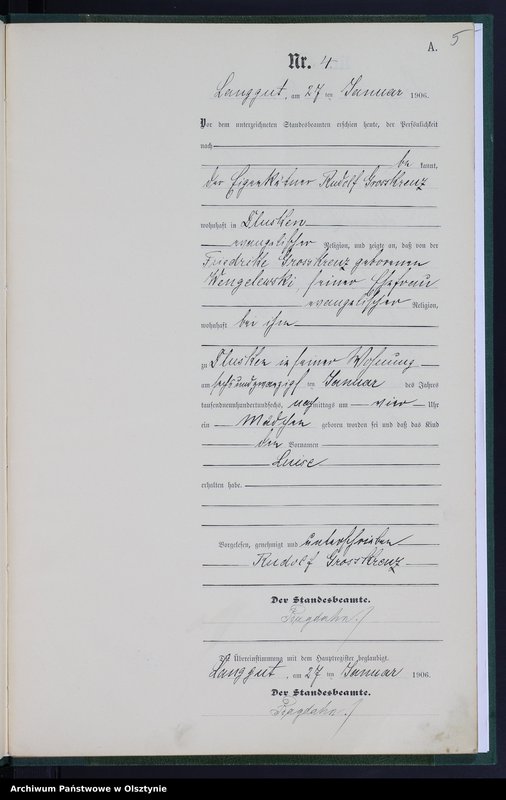 5
A.
Nr. 4
Langgut, am 27 ten Januar 1906.
Vor dem unterzeichneten Standesbeamten erschien heute, der Persönlichkeit
nach
be kannt,
der Eigenkätner Rudolf Grosskreuz
wohnhaft in Plusken
evangelischer Religion, und zeigte an, daß von der
Grosskreuz geborenen
Wengelewski, seiner Ehefrau
evangelischer Religion,
wohnhaft bei ihm
zu Plusken in seiner Wohnung
am sechsundzwanzigsten Januar des Jahres
tausendneunhundertundsechs, nachmittags um vier Uhr
ein Mädchen geboren worden sei und daß das Kind
den Vornamen
Luise
erhalten habe.
Vorgelesen, genehmigt und unterschrieben
Rudolf Grosskreuz
Der Standesbeamte.
Die Übereinstimmung mit dem Hauptregister beglaubigt.
Langgut, am 27 ten Januar 1906.
Der Standesbeamte.
Archiwum Państwowe w Olsztynie